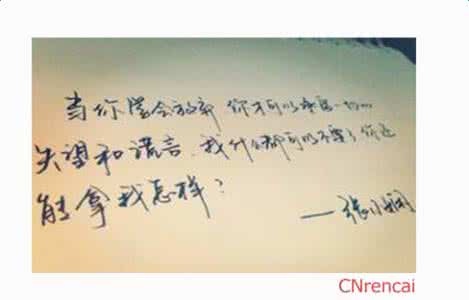 当你学会放弃 你才可以承受一切…
失望和谎言.我什么都可以不要了你还
能拿我怎样？
——张小娴
CNrencai